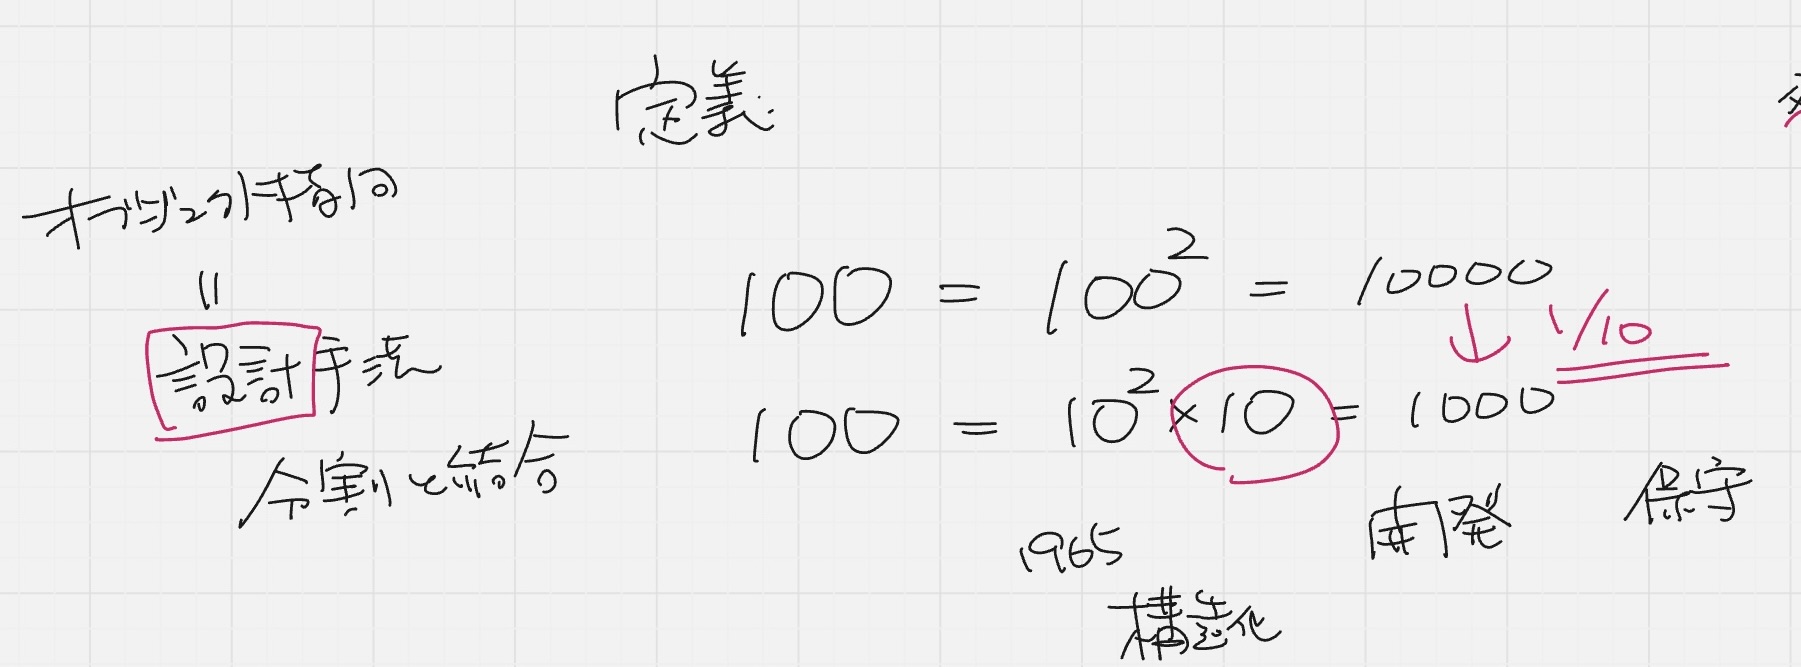 定義
オブジェクト指向
=
設計手法
分割と結合
100 = 100² = 10000
↓ 1/10
100 = 10² × 10 = 1000
開発
保守
1965
構造化